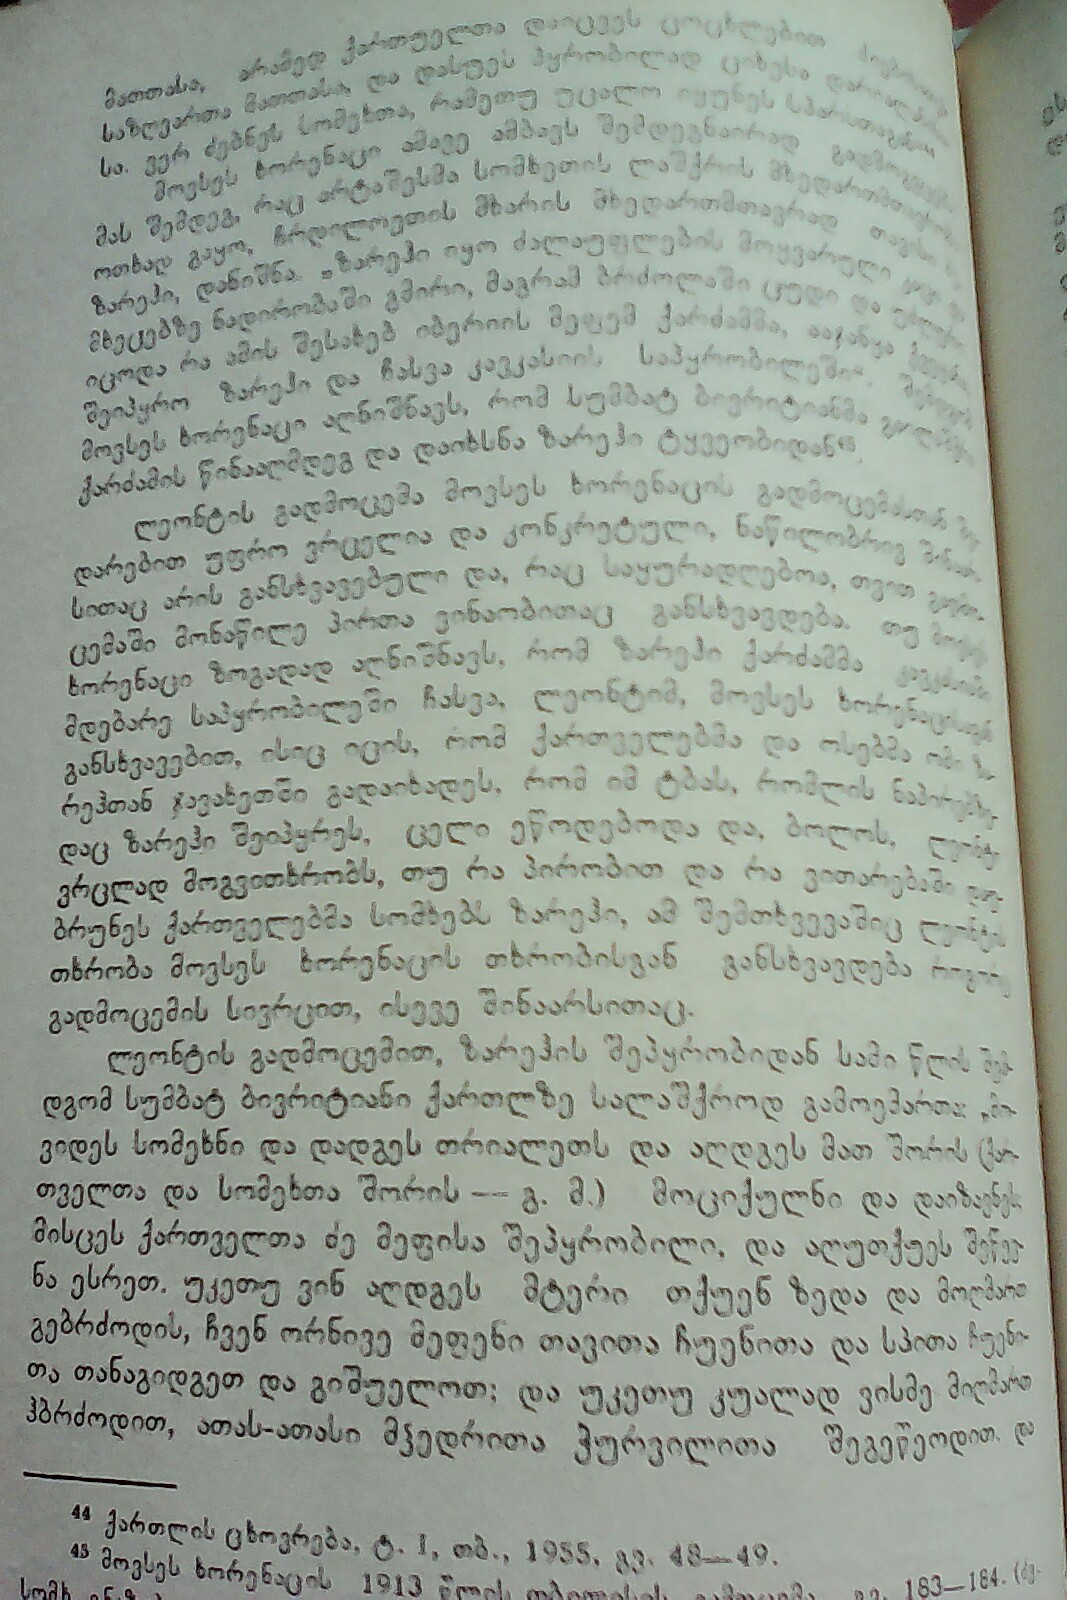 მათთასა, არამედ ქართუელთა დაიცვეს ცოცხლებით
საზღვართა მათთასა, და დასუეს პყრობილად ციხესა
სა. ვერ ძებნეს სომეხთა, რამეთუ უცალო იყუნეს სპარსთაგან
მოვსეს ხორენაცი ამავე ამბავს შემდეგნაირად
მას შემდეგ, რაც არტაშესმა სომხეთის ლაშქრის მხედართმთავრობა
ოთხად გაყო, ჩრდილოეთის მხარის მხედართმთავრად თავისი
ზარეჰი, დანიშნა. „ზარეჰი იყო ძალაუფლების მოყვარული
მხეცებზე ნადირობაში გმირი, მაგრამ ბრძოლაში ცუდი და
იცოდა რა ამის შესახებ იბერიის მეფემ ქარძამმა, ააჯანყა
შეიპყრო ზარეჰი და ჩასვა კავკასიის საპყრობილეში“.
მოვსეს ხორენაცი აღნიშნავს, რომ სუმბატ ბივრიტიანმა
ქარძამის წინააღმდეგ და დაიხსნა ზარეჰი ტყვეობიდან⁴⁵.
ლეონტის გადმოცემა მოვსეს ხორენაცის გადმოცემასთან
დარებით უფრო ვრცელია და კონკრეტული, ნაწილობრივ
სითაც არის განსხვავებული და, რაც საყურადღებოა, თვით
ცემაში მონაწილე პირთა ვინაობითაც განსხვავდება. თუ
ხორენაცი ზოგადად აღნიშნავს, რომ ზარეჰი ქარძამმა
მდებარე საპყრობილეში ჩასვა, ლეონტიმ, მოვსეს ხორენაცისგან
განსხვავებით, ისიც იცის, რომ ქართველებმა და ოსებმა ომი ზა-
რეჰთან ჯავახეთში გადაიხადეს, რომ იმ ტბას, რომლის ნაპირებზე-
დაც ზარეჰი შეიპყრეს, ცელი ეწოდებოდა და, ბოლოს, ლეონტი
ვრცლად მოგვითხრობს, თუ რა პირობით და რა ვითარებაში და-
ბრუნეს ქართველებმა სომხებს ზარეჰი, ამ შემთხვევაშიც ლეონტის
თხრობა მოვსეს ხორენაცის თხრობისგან განსხვავდება როგორც
გადმოცემის სივრცით, ისევე შინაარსითაც.
ლეონტის გადმოცემით, ზარეჰის შეპყრობიდან სამი წლის შემ-
დგომ სუმბატ ბივრიტიანი ქართლზე სალაშქროდ გამოემართა: „მო-
ვიდეს სომეხნი და დადგეს თრიალეთს და აღდგეს მათ შორის (ქარ-
თველთა და სომეხთა შორის — გ. მ.) მოციქულნი და დაიზავნეს.
მისცეს ქართველთა ძე მეფისა შეპყრობილი, და აღუთქუეს შეწევ-
ნა ესრეთ. უკეთუ ვინ აღდგეს მტერი თქუენ ზედა და მოღმართ
გებრძოდის, ჩვენ ორნივე მეფენი თავითა ჩუენითა და სპითა ჩუენი-
თა თანაგიდგეთ და გიშუელოთ; და უკეთუ კუალად ვისმე მიღმართ
ჰბრძოდით, ათას-ათასი მჴედრითა ჭურვილითა შეგეწეოდით. და
⁴⁴ ქართლის ცხოვრება, ტ. I, თბ., 1955, გვ. 48—49.
⁴⁵ მოვსეს ხორენაცის 1913 წლის თბილისის გამოცემა, გვ. 183—184. (ძვ.